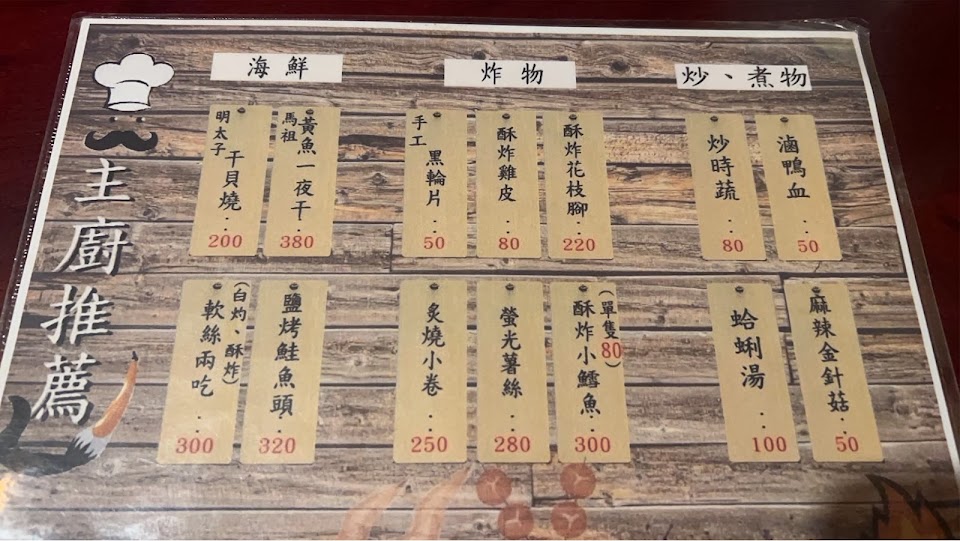 主廚推薦
海鮮
明太子干貝燒..200
馬祖黃魚一夜干..380
軟絲兩吃..300
(白灼、酥炸)
鹽烤鮭魚頭..320
炸物
手工黑輪片..50
酥炸雞皮..80
酥炸花枝腳..220
炙燒小卷..250
螢光薯絲..280
酥炸小鱈魚..300
(單隻80)
炒、煮物
炒時蔬..80
滷鴨血..50
蛤蜊湯..100
麻辣金針菇..50